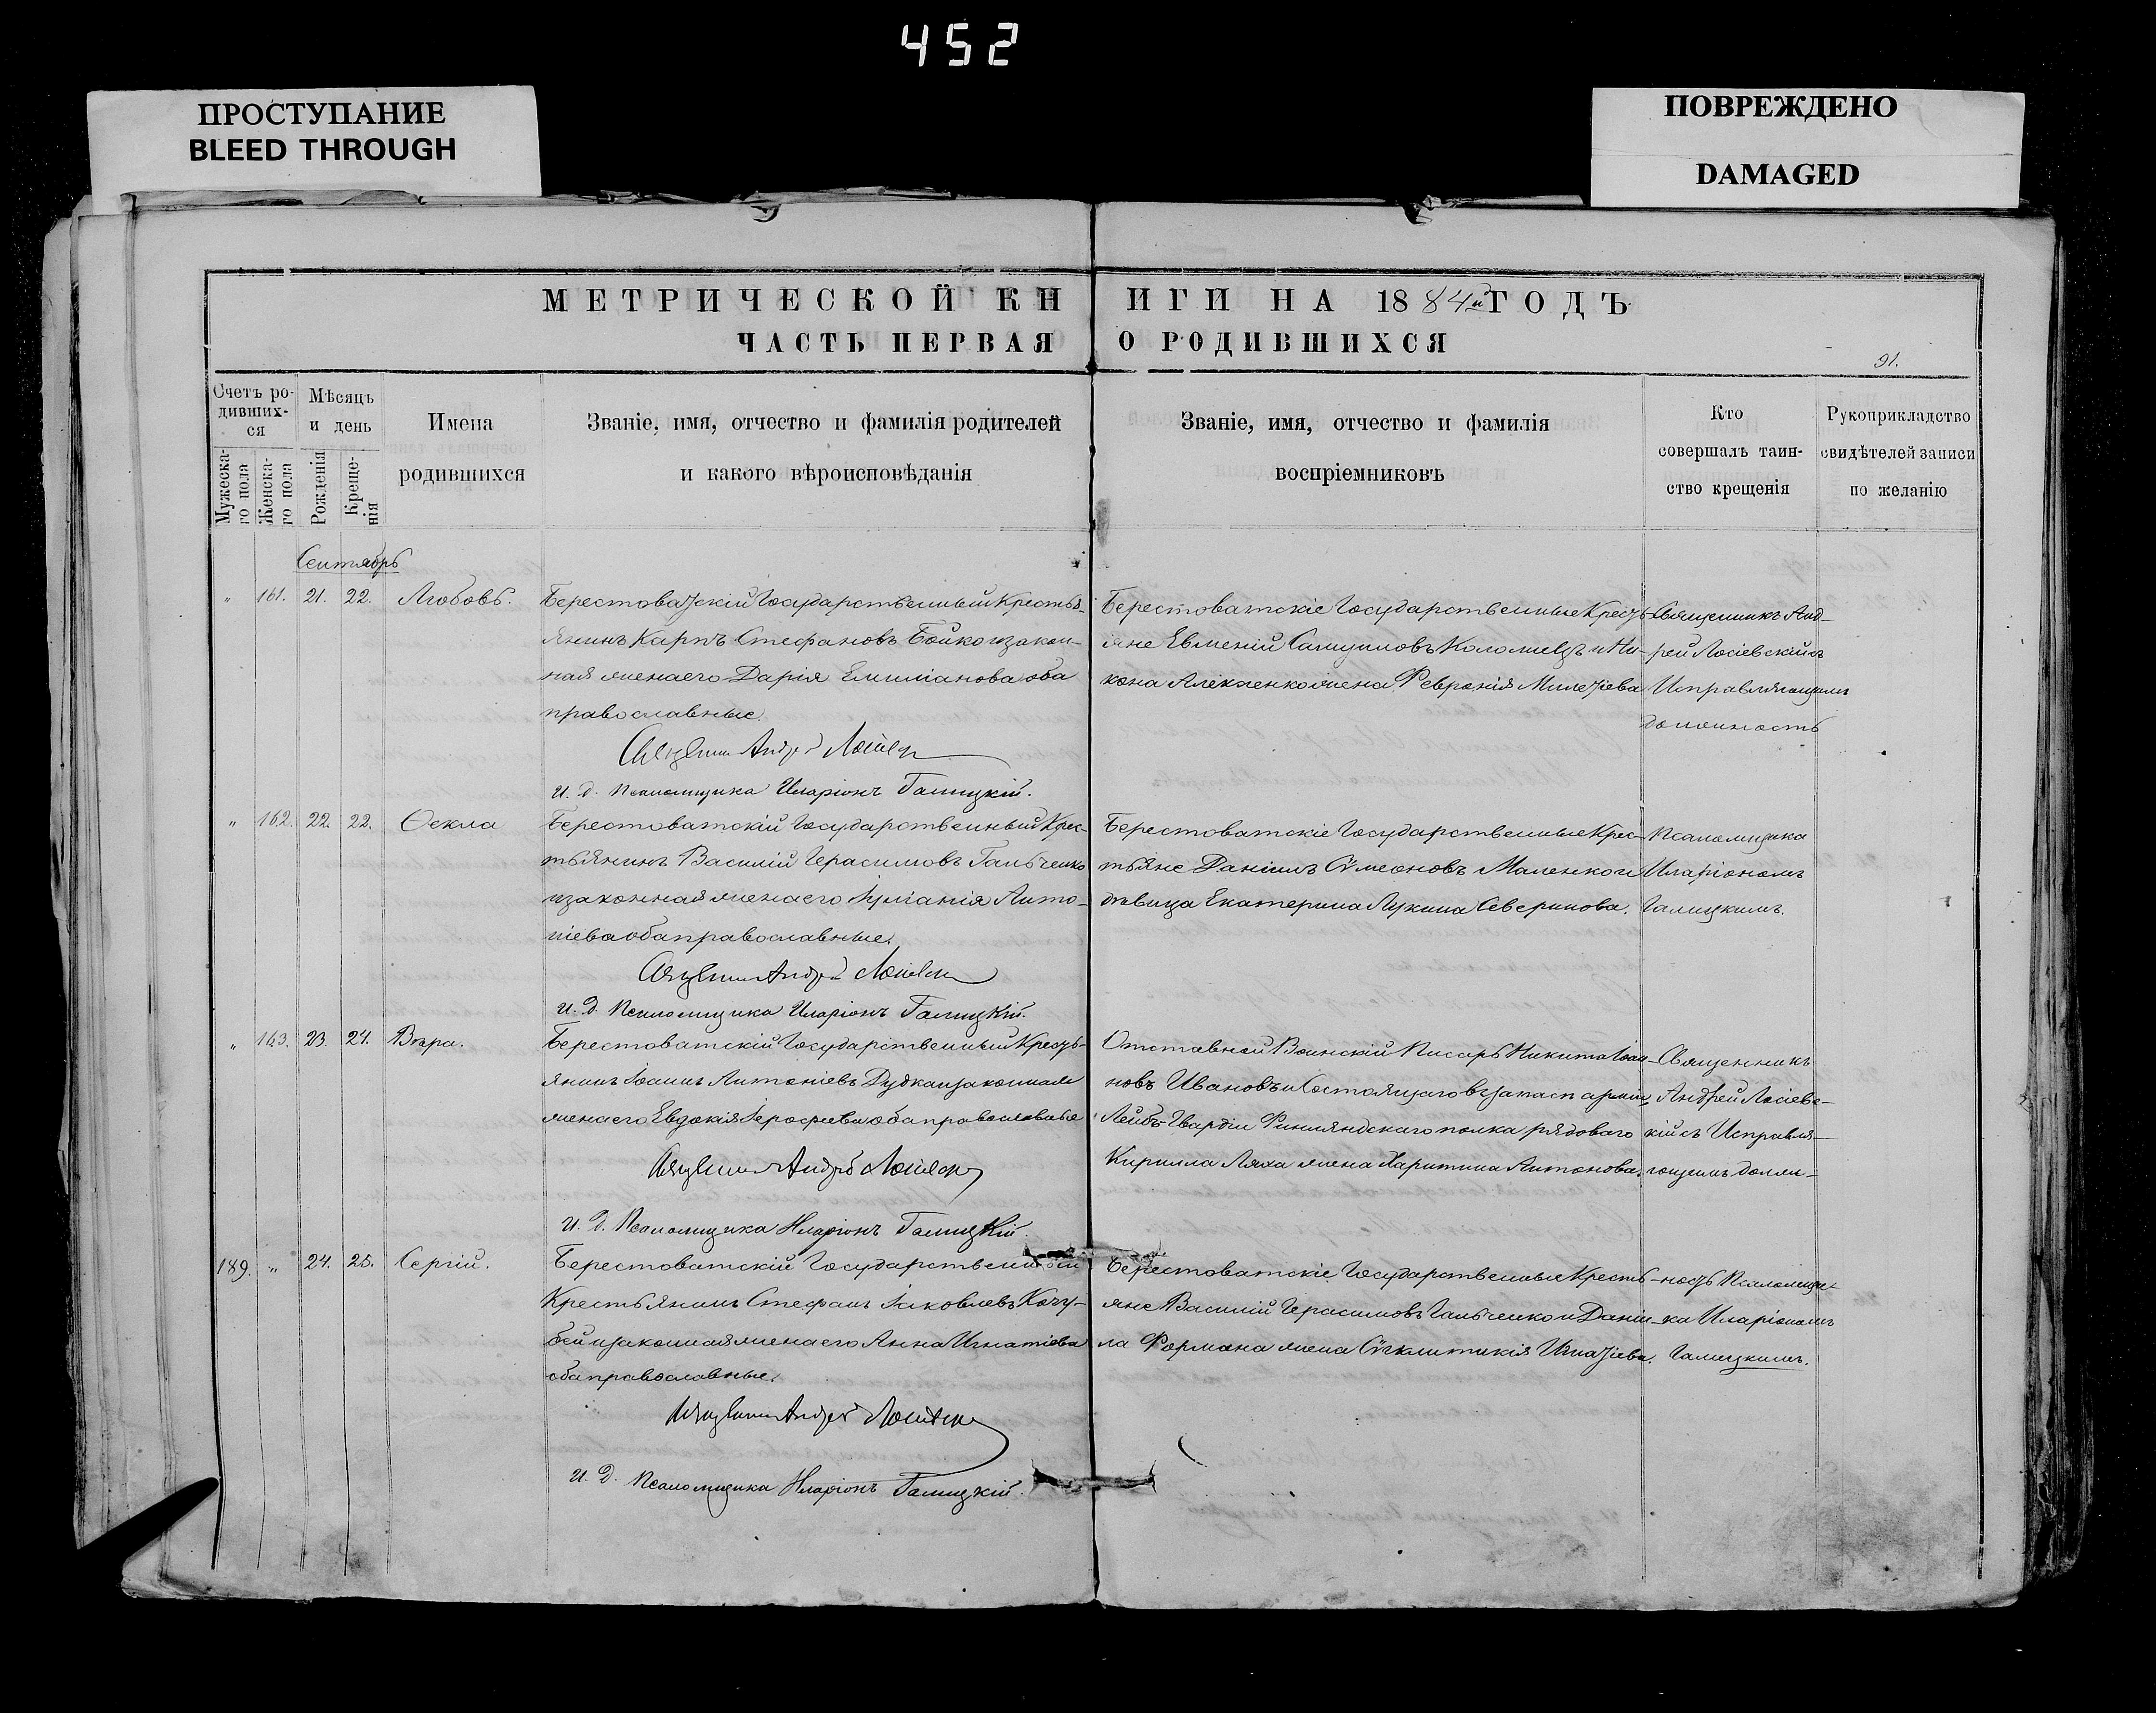 452
ПРОСТУПАНИЕ
BLEED THROUGH
ПОВРЕЖДЕНО
DAMAGED
МЕТРИЧЕСКОЙ КНИГИ НА 1884й ГОДЪ
ЧАСТЬ ПЕРВАЯ О РОДИВШИХСЯ
91.
Счетъ родившихся
Мужескаго пола
Женскаго пола
Мѣсяцъ и день
Рожденія
Крещенія
Имена
родившихся
Званіе, имя, отчество и фамилія родителей
и какого вѣроисповѣданія
Званіе, имя, отчество и фамилія
воспріемниковъ
Кто
совершалъ таин-
ство крещенія
Рукоприкладство
свидѣтелей записи
по желанію
Сентябрь
" 161. 21. 22. Любовь.
Берестоватскій Государственный Кресть-
янинъ Карпъ Стефановъ Бойко и закон-
ная жена его Дарія Емиліанова оба
православные.
Священникъ Андрей
И. д. Псаломщика Иларіонъ Галицкій.
Берестоватскіе Государственные Кресть-
яне Евменій Самуиловъ Коломиецъ и Ни-
кона Алексенко жена Феvронія Милетіева
Священникъ Анд-
рей Лосіевскій съ
Исправляющимъ
должность
" 162. 22. 22. Ѳекла
Берестоватскій Государственный Крес-
тьянинъ Василій Герасимовъ Гальченко
и законная жена его Іуліанія Анто-
ніева оба православные.
Священникъ Андрей
И. д. Псаломщика Иларіонъ Галицкій.
Берестоватскіе Государственные Крес-
тьяне Даніилъ Сѵмеоновъ Маленко и
дѣвица Екатерина Лукина Северинова.
Псаломщика
Иларіономъ
Галицкимъ.
" 163. 23. 24. Вѣра.
Берестоватскій Государственный Кресть-
янинъ Іоаннъ Антоніевъ Дудка и законная
жена его Евдокія Іерофеева оба православные
Священникъ Андрей
И. д. Псаломщика Иларіонъ Галицкій.
Отставной Воинскій Писарь Никита Іоан-
новъ Ивановъ и Состоящаго въ запасѣ арміи
Лейбъ-Гвардіи Финляндскаго полка рядоваго
Кирилла Ляха жена Харитина Антонова.
Священникъ
Андрей Лосіевс-
кій съ Исправля-
ющимъ долж-
189. " 24. 25. Сергій.
Берестоватскій Государственный
Крестьянинъ Стефанъ Іаковлевъ Кочу-
бей и законная жена его Анна Игнатіева
оба православные.
Священникъ Андрей
И. д. Псаломщика Иларіонъ Галицкій.
Берестоватскіе Государственные Кресть-
яне Василій Герасимовъ Гальченко и Даніи-
ла Формана жена Сѵгклитикія Игнатіева.
ность Псаломщи-
ка Иларіономъ
Галицкимъ.